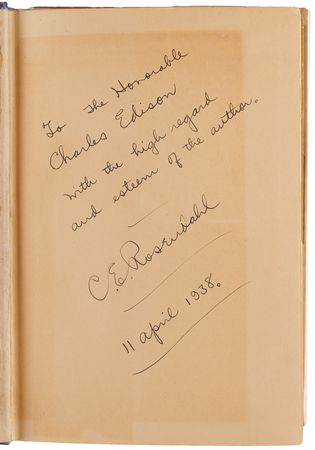 To the Honorable
Charles Edison
with the high regard
and esteem of the author.
C.E. Rosendahl
11 april 1938.